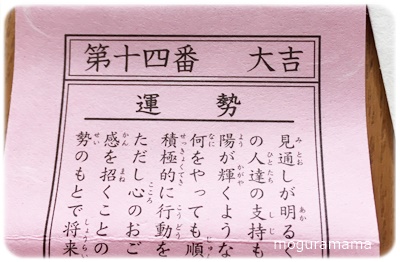 第十四番　大吉
運勢
見通しが明るく
の人達の支持も
陽が輝くような
何をやっても順
積極的に行動を
ただし心のおご
感を招くことの
勢のもとで将来
moguramama